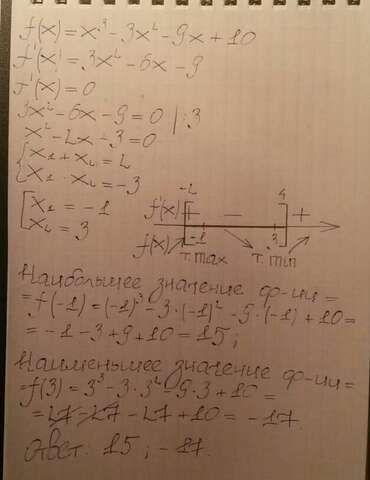 f(x) = x³ - 3x² - 9x + 10
f'(x) = 3x² - 6x - 9
f'(x) = 0
3x² - 6x - 9 = 0 | : 3
x² - 2x - 3 = 0
{ x₁ + x₂ = 2
{ x₁ · x₂ = -3
[ x₁ = -1
[ x₂ = 3
-2 4
f'(x) + - +
-1 3
f(x) т. max т. min
Наибольшее значение ф-ии =
= f(-1) = (-1)³ - 3·(-1)² - 9·(-1) + 10 =
= -1 - 3 + 9 + 10 = 15;
Наименьшее значение ф-ии =
= f(3) = 3³ - 3·3² - 9·3 + 10 =
= 27 - 27 - 27 + 10 = -17.
Ответ. 15; -17.